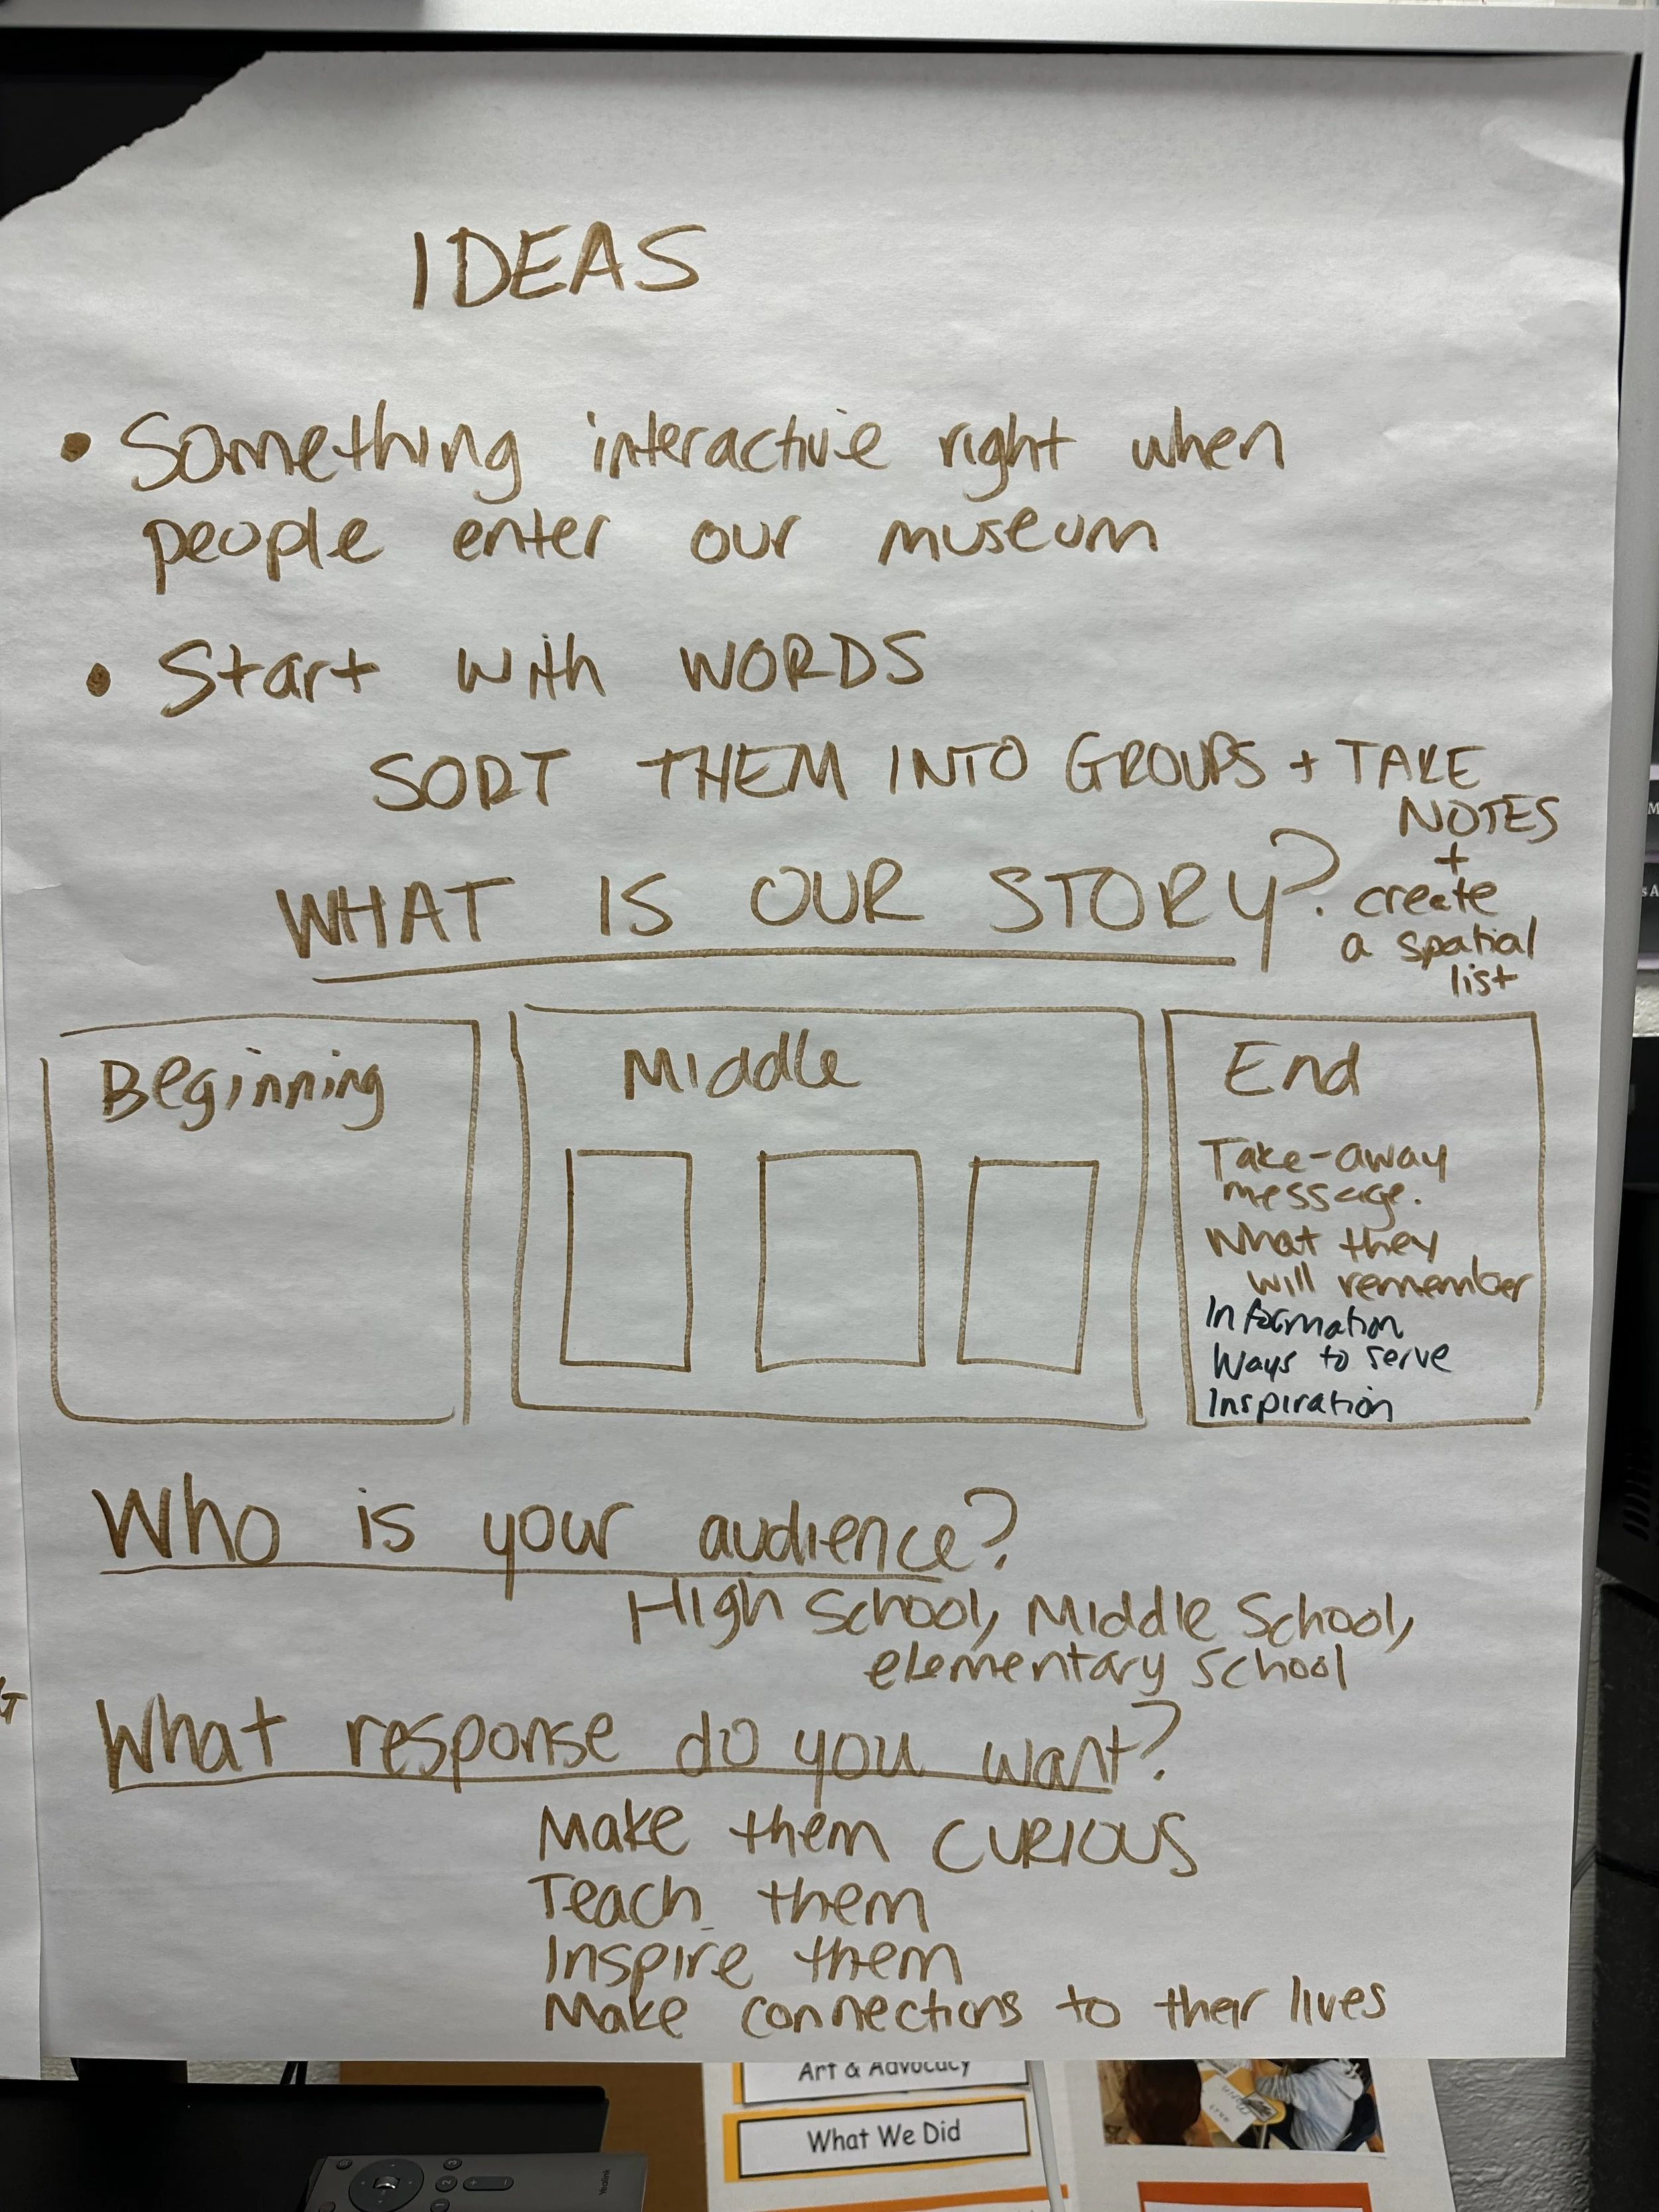 IDEAS
• Something interactive right when
people enter our museum
• Start with WORDS
SORT THEM INTO GROUPS + TAKE
NOTES
+
create
a spatial
list
WHAT IS OUR STORY?
Beginning
Middle
End
Take-away
message.
What they
will remember
Information
Ways to serve
Inspiration
Who is your audience?
High School, Middle School,
elementary school
What response do you want?
Make them CURIOUS
Teach them
Inspire them
Make connections to their lives
Art & Advocacy
What We Did
Yealink